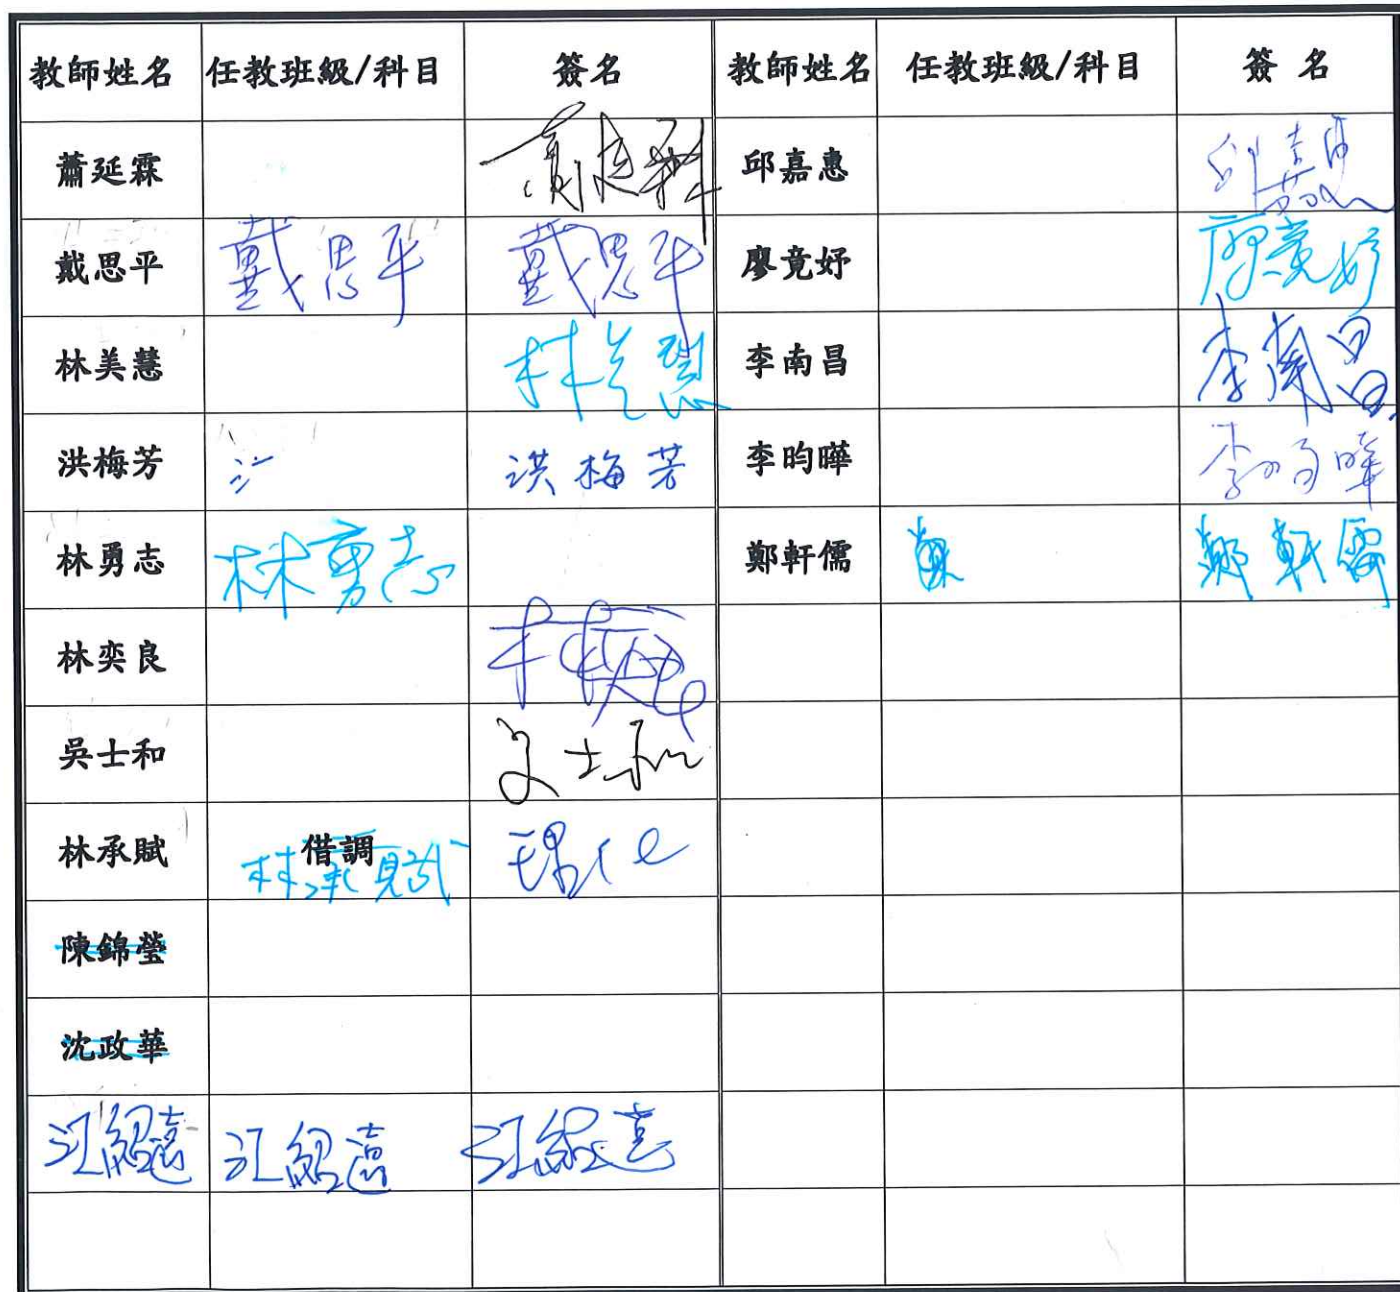 教師姓名 任教班級/科目 簽名 教師姓名 任教班級/科目 簽 名
蕭延霖 邱嘉惠 邱嘉惠
戴思平 戴思平 戴思平 廖竟妤 廖竟妤
林美慧 林美慧 李南昌 李南昌
洪梅芳 氵 洪梅芳 李昀曄 李昀曄
林勇志 林勇志 鄭軒儒 鄭軒儒
林奕良
吳士和 吳士和
林承賦 借調 林承賦
陳錦瑩
沈政華